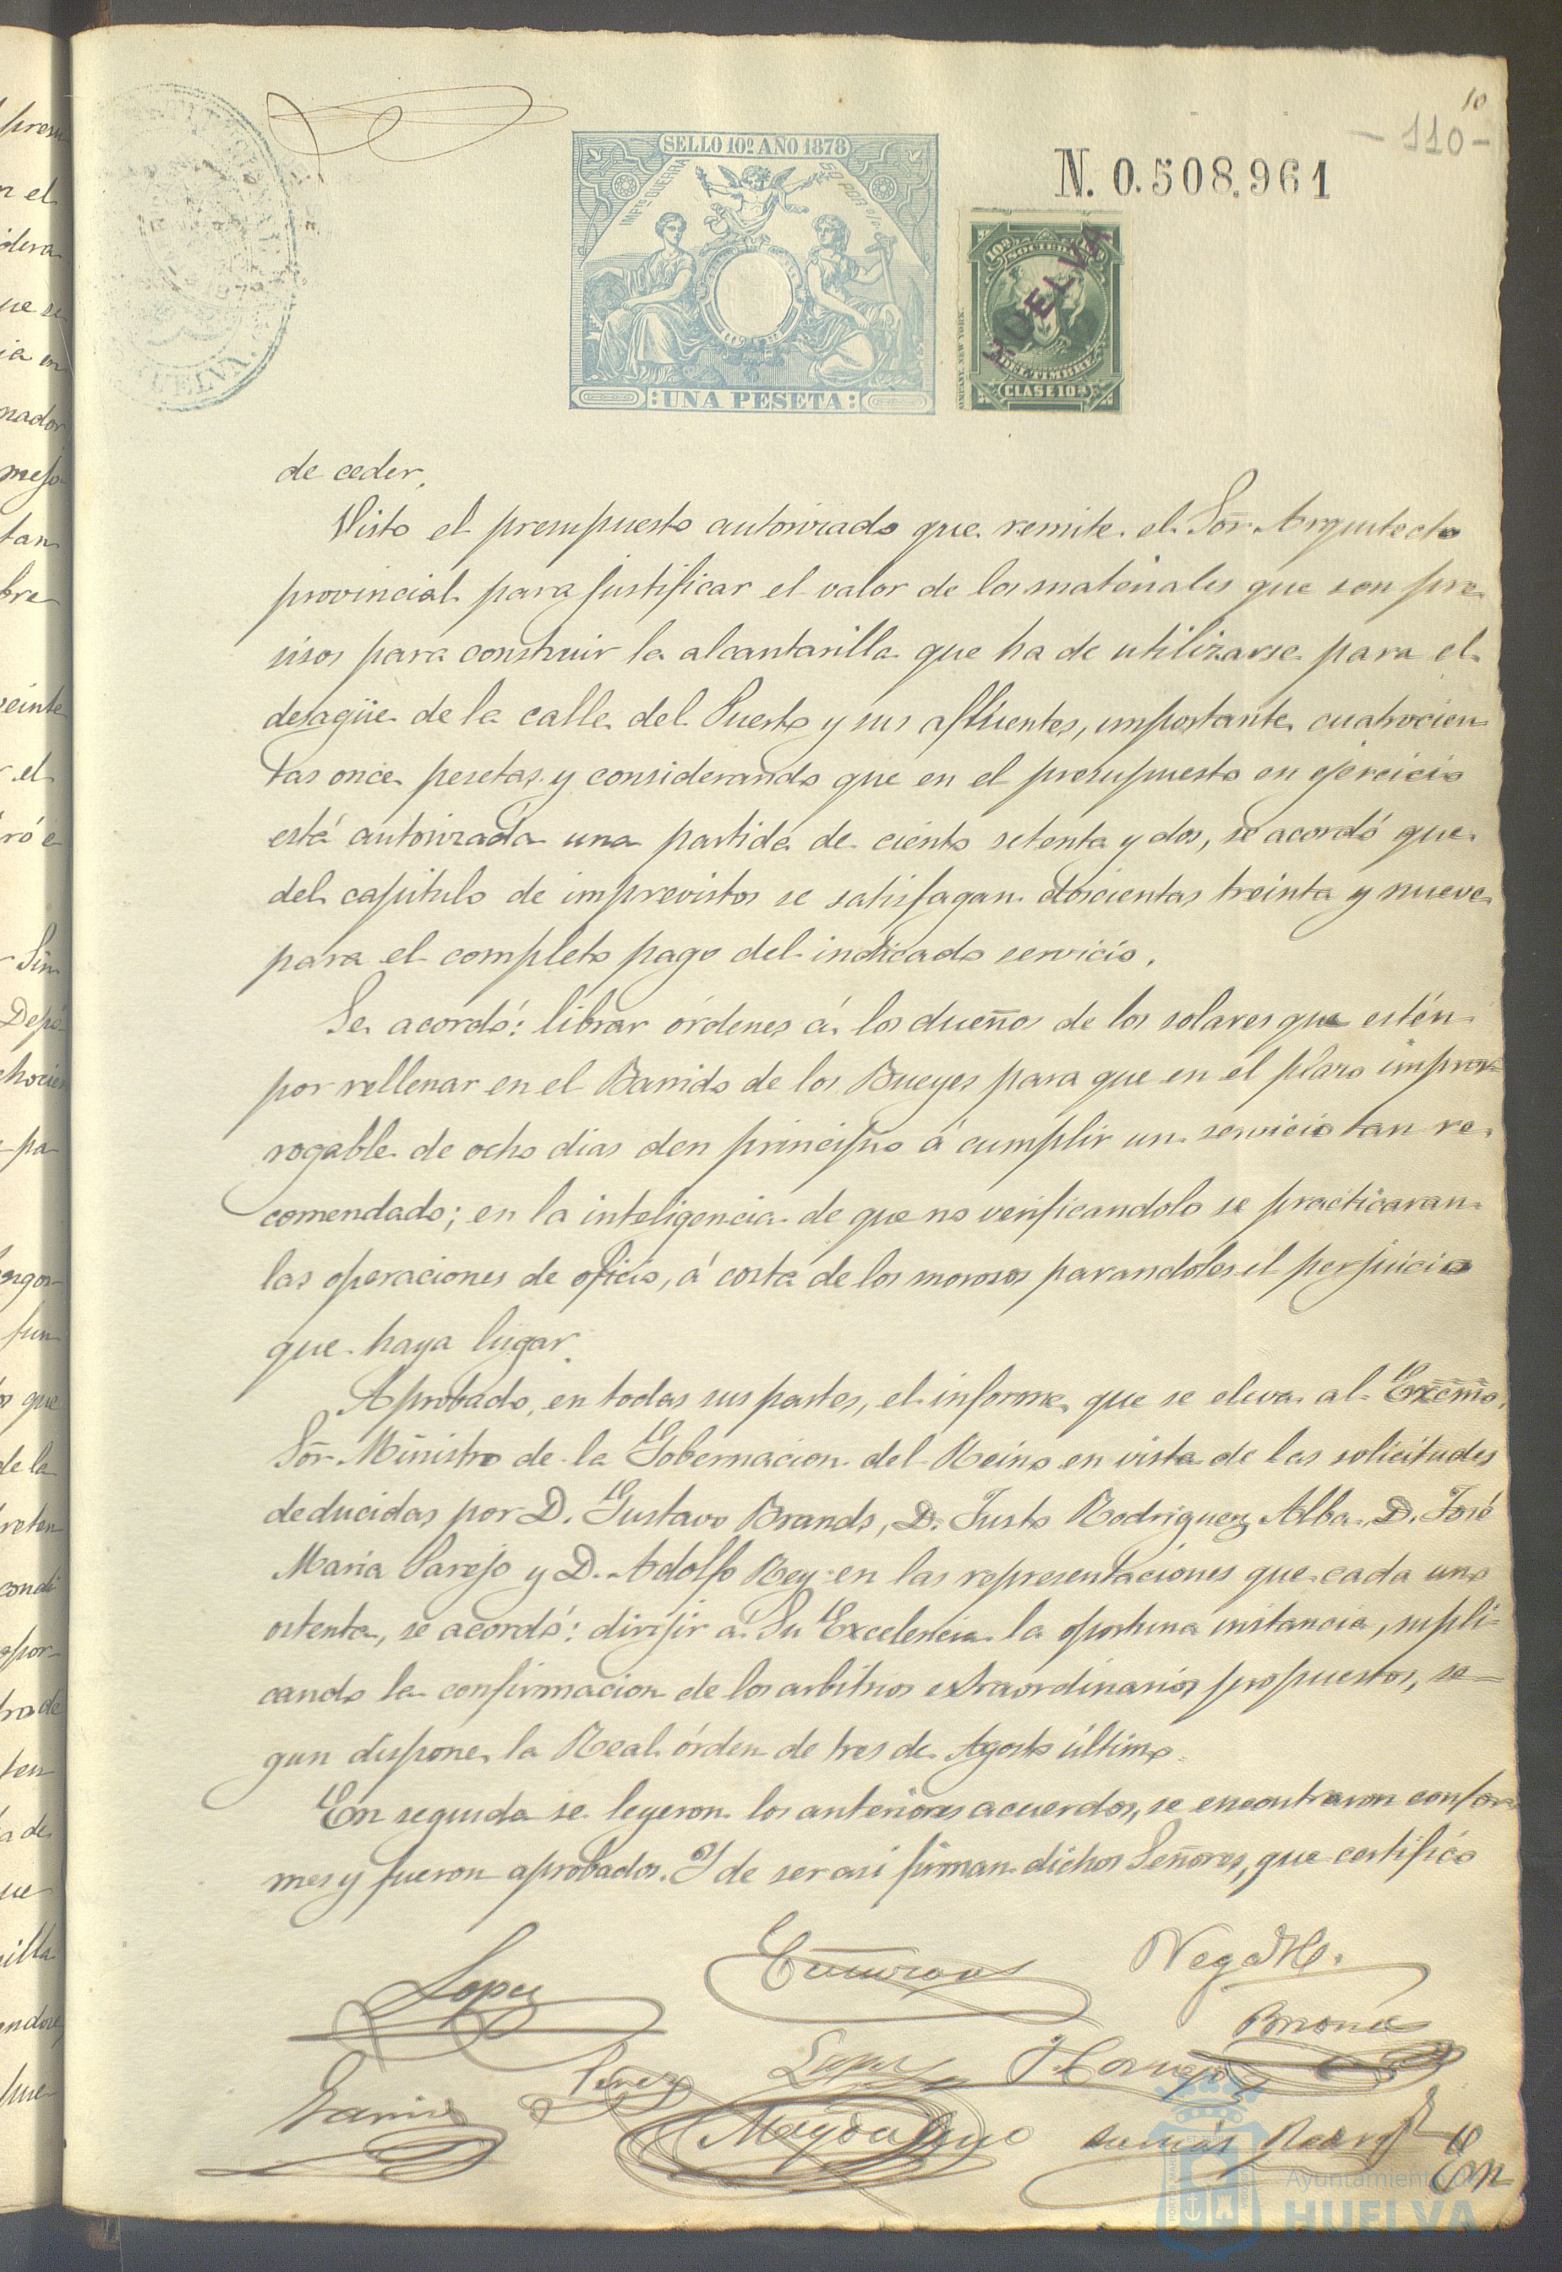 10
-110-
SELLO 10º AÑO 1878
IMPTO GUERRA
50 POR %
UNA PESETA
N. 0.508.961
10ª SOCIEDAD
DEL TIMBRE
CLASE 10ª
HUELVA
HUELVA.
de ceder.
Visto el presupuesto autorizado que remite el Sor. Arquitecto
provincial para justificar el valor de los materiales que son pre
sisos para construir la alcantarilla que ha de utilizarse para el
desagüe de la calle del Puerto y sus afluentes, importante cuatrocien
tas once pesetas y considerando que en el presupuesto en ejercicio
está autorizada una partida de ciento setenta y dos, se acordó que
del capitulo de imprevistos se satisfagan doscientas treinta y nueve
para el completo pago del indicado servicio.
Se acordó: librar órdenes á los dueños de los solares que estén
por rellenar en el Barrido de los Bueyes para que en el plazo impror
rogable de ocho dias den principio á cumplir un servicio tan re
comendado; en la inteligencia de que no verificandolo se practicaran
las operaciones de oficio, á costa de los morosos parandoles el perjuicio
que haya lugar.
Aprobado, en todas sus partes, el informe que se eleva al Excmo.
Sor. Ministro de la Gobernacion del Reino en vista de las solicitudes
deducidas por D. Gustavo Brands, D. Justo Rodriguez Alba, D. José
Maria Parejo y D. Adolfo Rey en las representaciones que cada uno
ostenta, se acordó: dirijir á Su Excelencia la oportuna instancia, supli-
cando la confirmacion de los arbitrios extraordinarios propuestos, se-
gun dispone la Real órden de tres de Agosto último.
En seguida se leyeron los anteriores acuerdos, se encontraron confor
mes y fueron aprobados. Y de ser asi firman dichos Señores, que certifico
Lopez
Garcia
Perez
Lopez
En
Ayuntamiento de
HUELVA